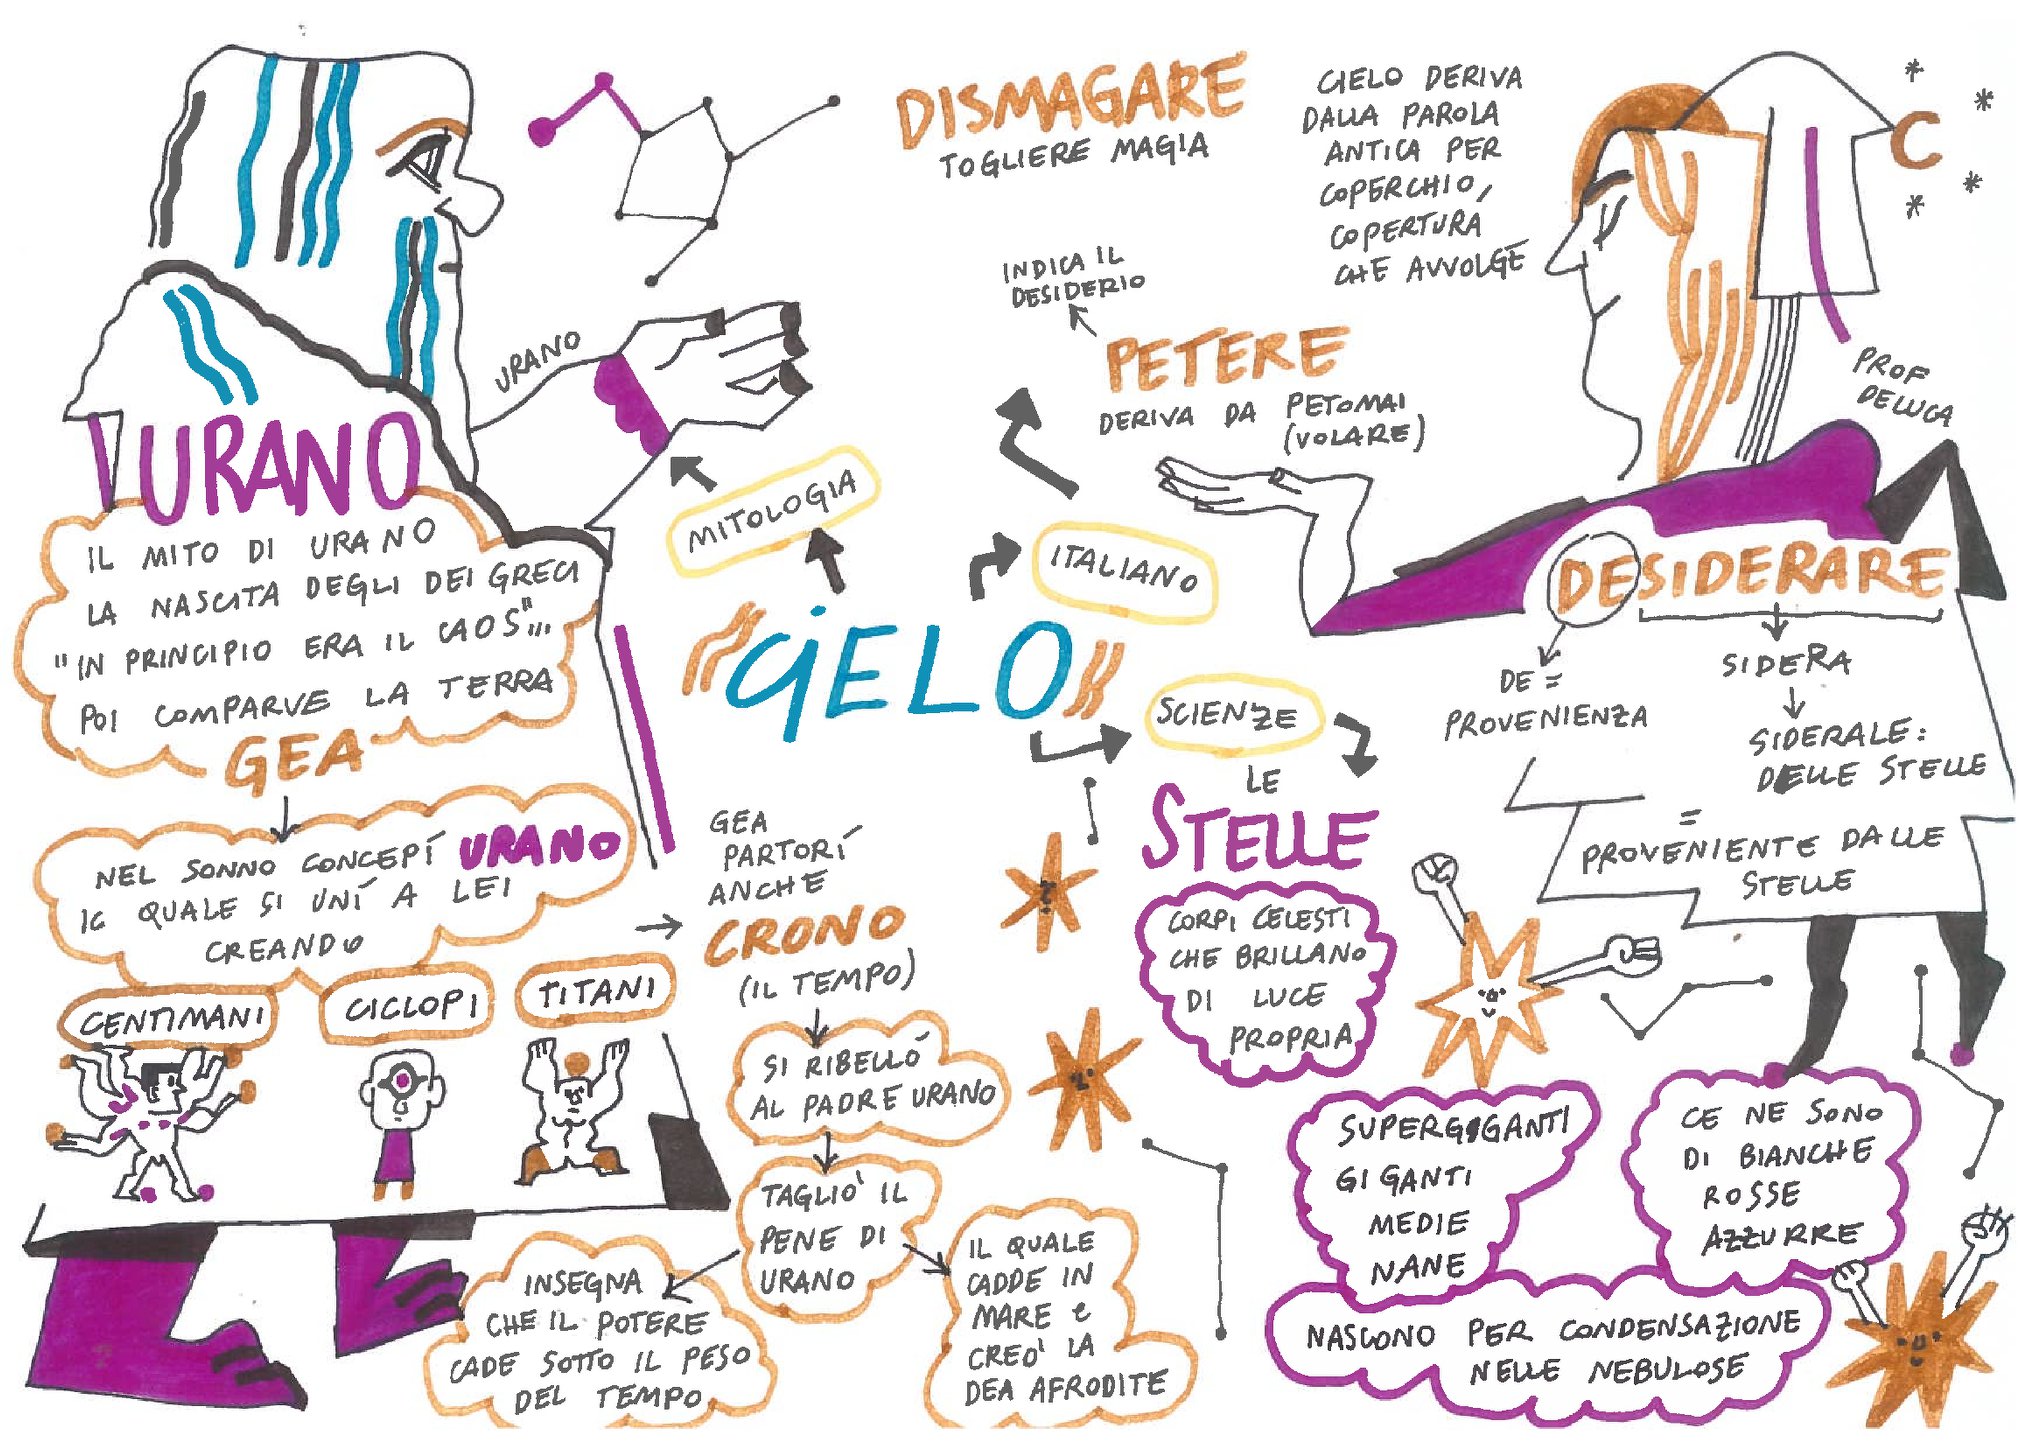 DISMAGARE
TOGLIERE MAGIA
CIELO DERIVA
DALLA PAROLA
ANTICA PER
COPERCHIO,
COPERTURA
CHE AVVOLGE
C
INDICA IL
DESIDERIO
PETERE
DERIVA DA PETOMAI
(VOLARE)
PROF
DELUCA
URANO
MITOLOGIA
ITALIANO
"CIELO"
SCIENZE
URANO
IL MITO DI URANO
LA NASCITA DEGLI DEI GRECI
"IN PRINCIPIO ERA IL CAOS"...
POI COMPARVE LA TERRA
GEA
NEL SONNO CONCEPÍ URANO
IL QUALE SI UNÍ A LEI
CREANDO
CENTIMANI
CICLOPI
TITANI
GEA
PARTORÍ
ANCHE
CRONO
(IL TEMPO)
SI RIBELLÒ
AL PADRE URANO
TAGLIO' IL
PENE DI
URANO
INSEGNA
CHE IL POTERE
CADE SOTTO IL PESO
DEL TEMPO
IL QUALE
CADDE IN
MARE e
CREO' LA
DEA AFRODITE
DESIDERARE
DE =
PROVENIENZA
SIDERA
SIDERALE:
DELLE STELLE
=
PROVENIENTE DALLE
STELLE
LE
STELLE
CORPI CELESTI
CHE BRILLANO
DI LUCE
PROPRIA
SUPERGIGANTI
GIGANTI
MEDIE
NANE
CE NE SONO
DI BIANCHE
ROSSE
AZZURRE
NASCONO PER CONDENSAZIONE
NELLE NEBULOSE